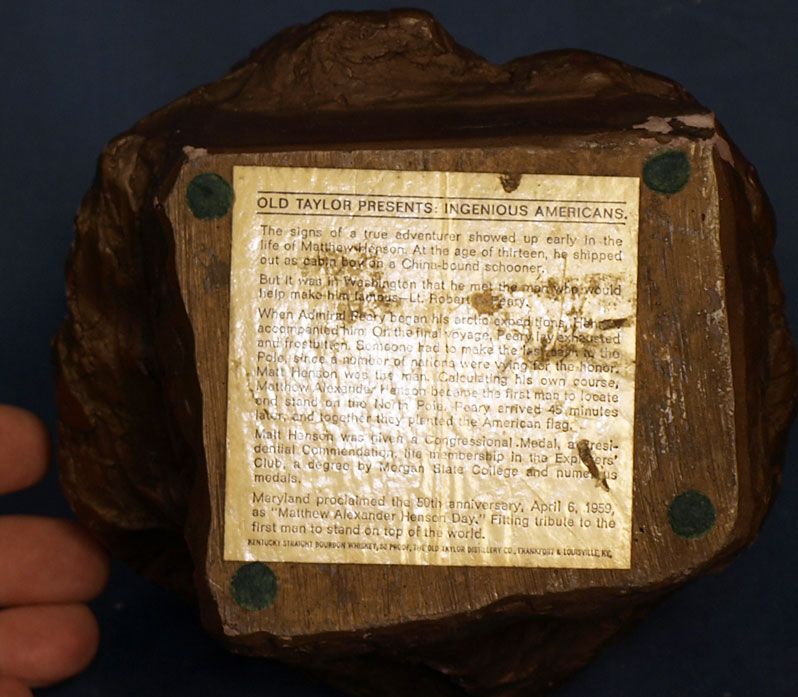 OLD TAYLOR PRESENTS: INGENIOUS AMERICANS.
The signs of a true adventurer showed up early in the
life of Matthew Henson. At the age of thirteen, he shipped
out as cabin boy on a China-bound schooner.
But it was in Washington that he met the man who would
help make him famous—Lt. Robert Peary.
When Admiral Peary began his arctic expeditions,
accompanied him. On the final voyage, Peary lay exhausted
and frostbitten. Someone had to make the last dash to the
Pole, since a number of nations were vying for the honor.
Matt Henson was the man. Calculating his own course,
Matthew Alexander Henson became the first man to locate
and stand on the North Pole. Peary arrived 45 minutes
later, and together they planted the American flag.
Matt Henson was given a Congressional Medal, a Presi-
dential Commendation, life membership in the Explorers'
Club, a degree by Morgan State College and numerous
medals.
Maryland proclaimed the 50th anniversary, April 6, 1959,
as "Matthew Alexander Henson Day." Fitting tribute to the
first man to stand on top of the world.
KENTUCKY STRAIGHT BOURBON WHISKEY, PROOF, THE OLD TAYLOR DISTILLERY CO., FRANKFORT & LOUISVILLE, KY.